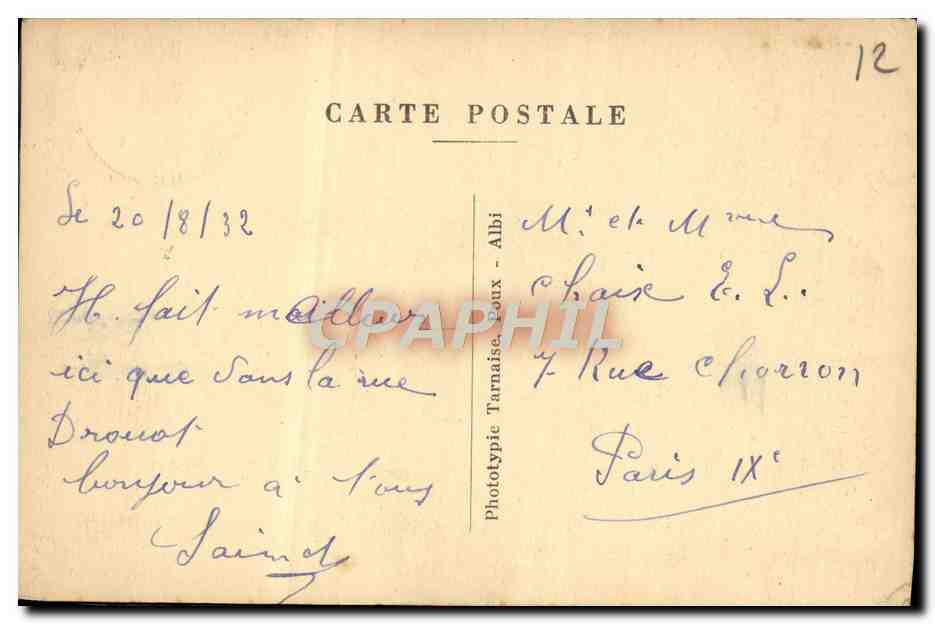 12
CARTE POSTALE
le 20/8/32
Il fait meilleur
ici que dans la rue
Drouot
bonjour à tous
Mr et Mme
Chaix E. L.
7 Rue Chorron
Paris IXe
Phototypie Tarnaise, Poux - Albi
CPAPHIL